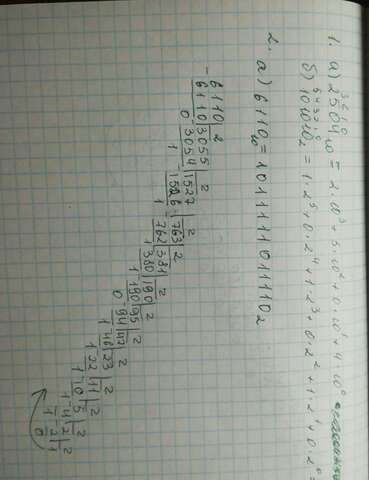 1. а) 2504₁₀ = 2·10³+5·10²+0·10¹+4·10⁰
б) 101010₂ = 1·2⁵+0·2⁴+1·2³+0·2²+1·2¹+0·2⁰=
2. а) 6110₁₀ = 1011111011110₂
6110 2
6110 3055 2
0 3054 1527 2
1 1526 763 2
1 762 381 2
1 380 190 2
1 190 95 2
0 94 47 2
1 46 23 2
1 22 11 2
1 10 5 2
1 4 2 2
1 2 1
0